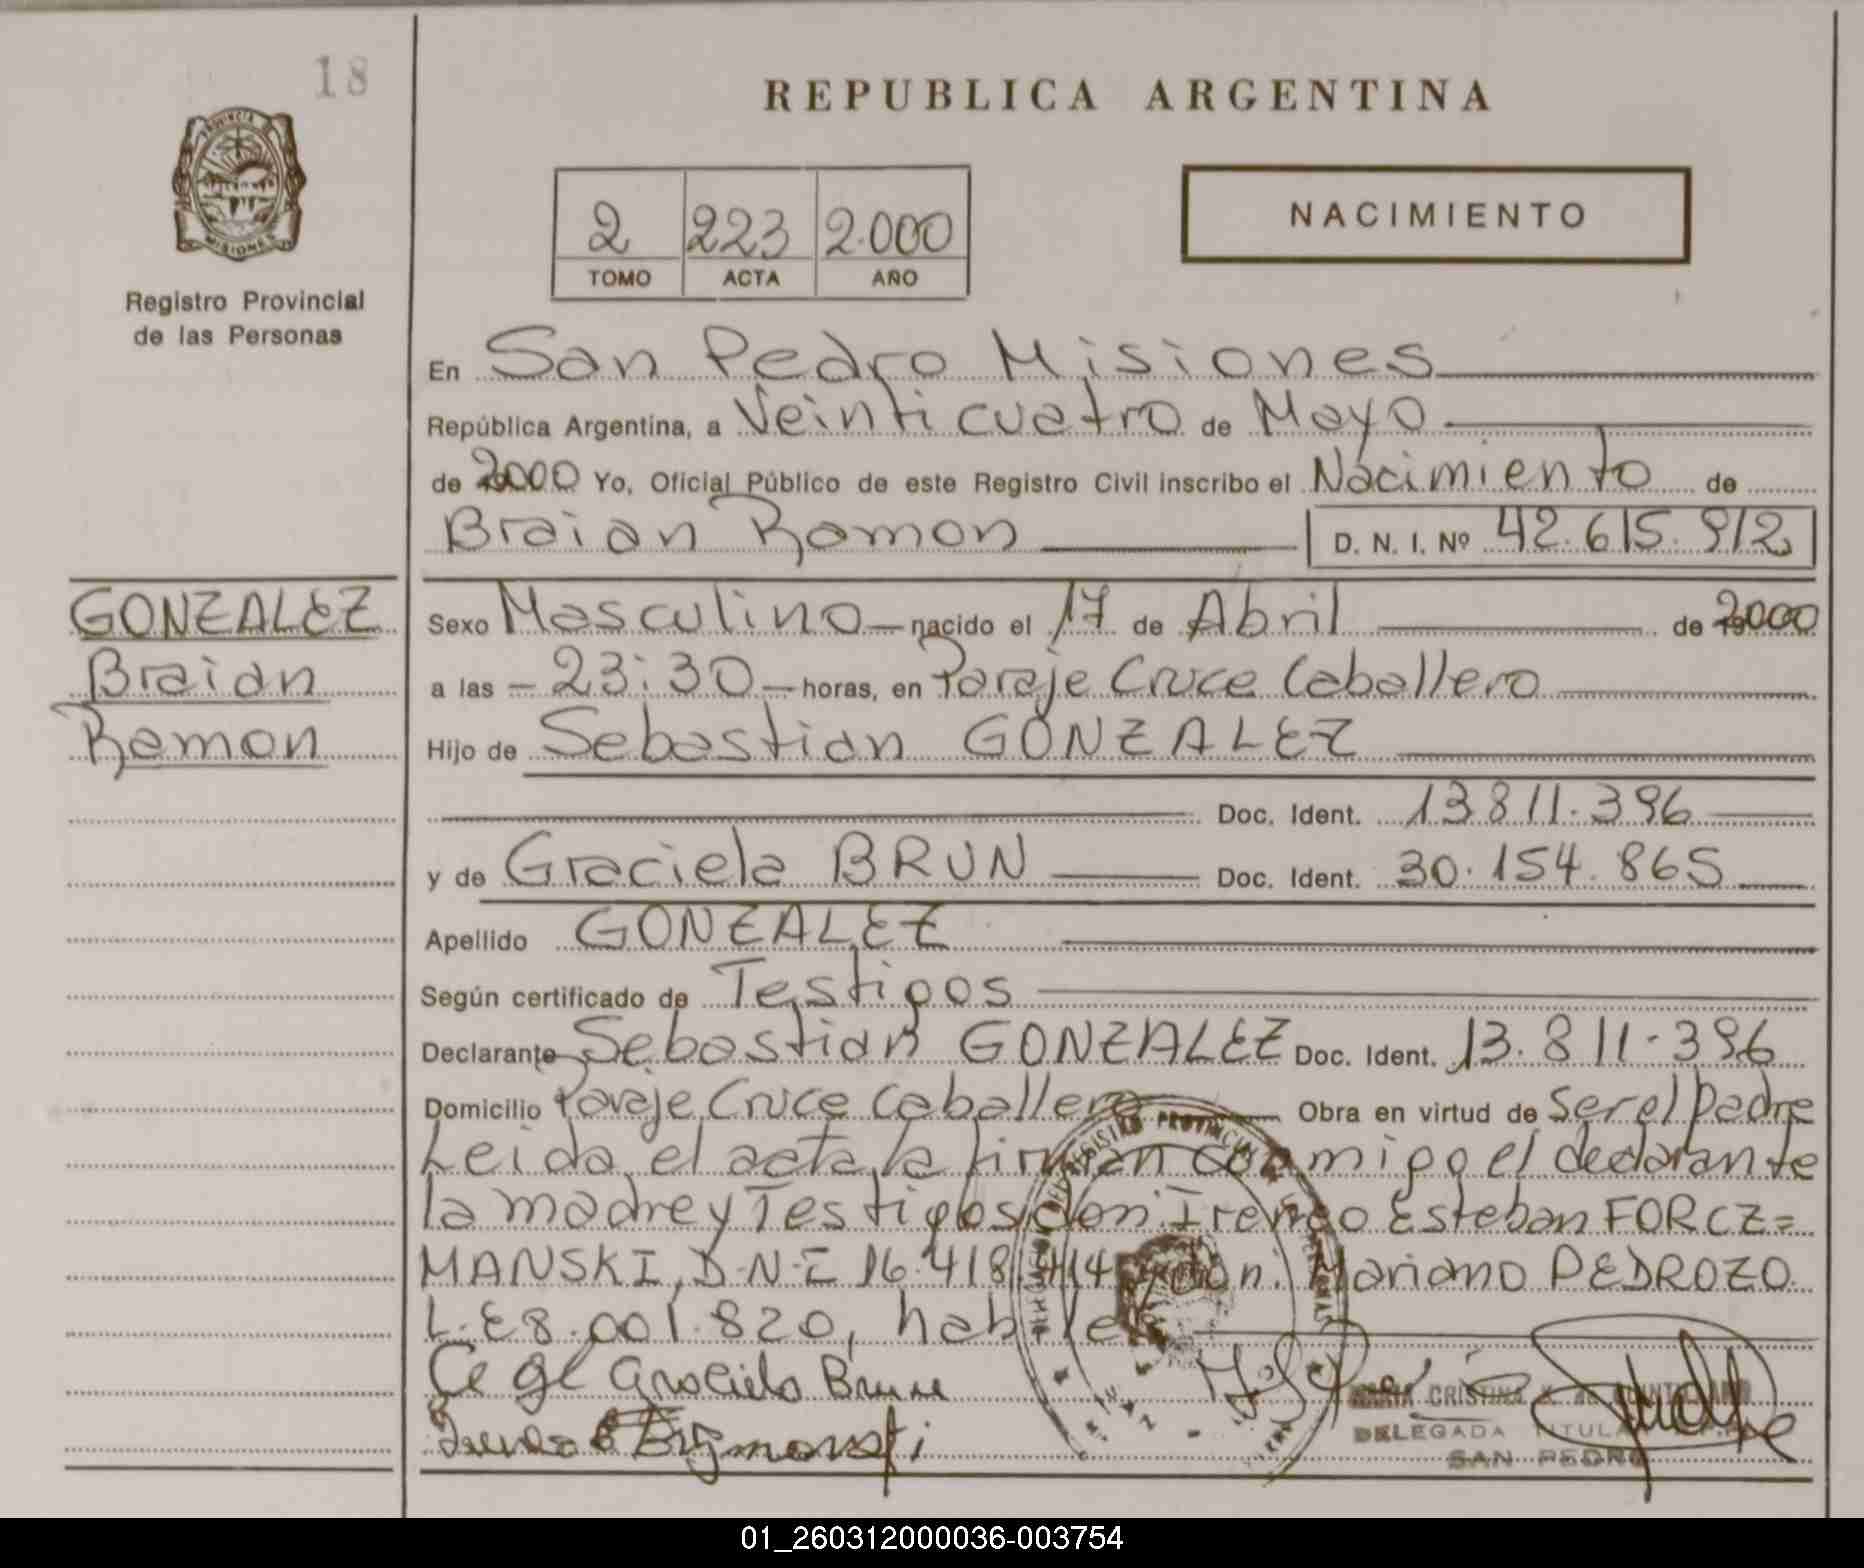 18
PROVINCIA DE
MISIONES
Registro Provincial
de las Personas
REPUBLICA ARGENTINA
2 223 2.000
TOMO ACTA AÑO
NACIMIENTO
En San Pedro Misiones
República Argentina, a Veinticuatro de Mayo
de 2000 Yo, Oficial Público de este Registro Civil inscribo el Nacimiento de
Braian Ramon D. N. I. Nº 42.615.912
GONZALEZ
Braian
Ramon
Sexo Masculino nacido el 17 de Abril de 2000
a las - 23:30 - horas, en Paraje Cruce Caballero
Hijo de Sebastian GONZALEZ
Doc. Ident. 13811.396
y de Graciela BRUN Doc. Ident. 30.154.865
Apellido GONZALEZ
Según certificado de Testigos
Declarante Sebastian GONZALEZ Doc. Ident. 13.811-396
Domicilio Paraje Cruce Caballero Obra en virtud de Ser el Padre
Leida el acta, la firman conmigo el declarante
la madre y Testigos don: Ireneo Esteban FORCZ=
MANSKI, D.N.I 16.418.414 y don: Mariano PEDROZO
L.E 8.001.820, habiles
Graciela Brun
DELEGADA TITULAR
SAN PEDRO
01_260312000036-003754